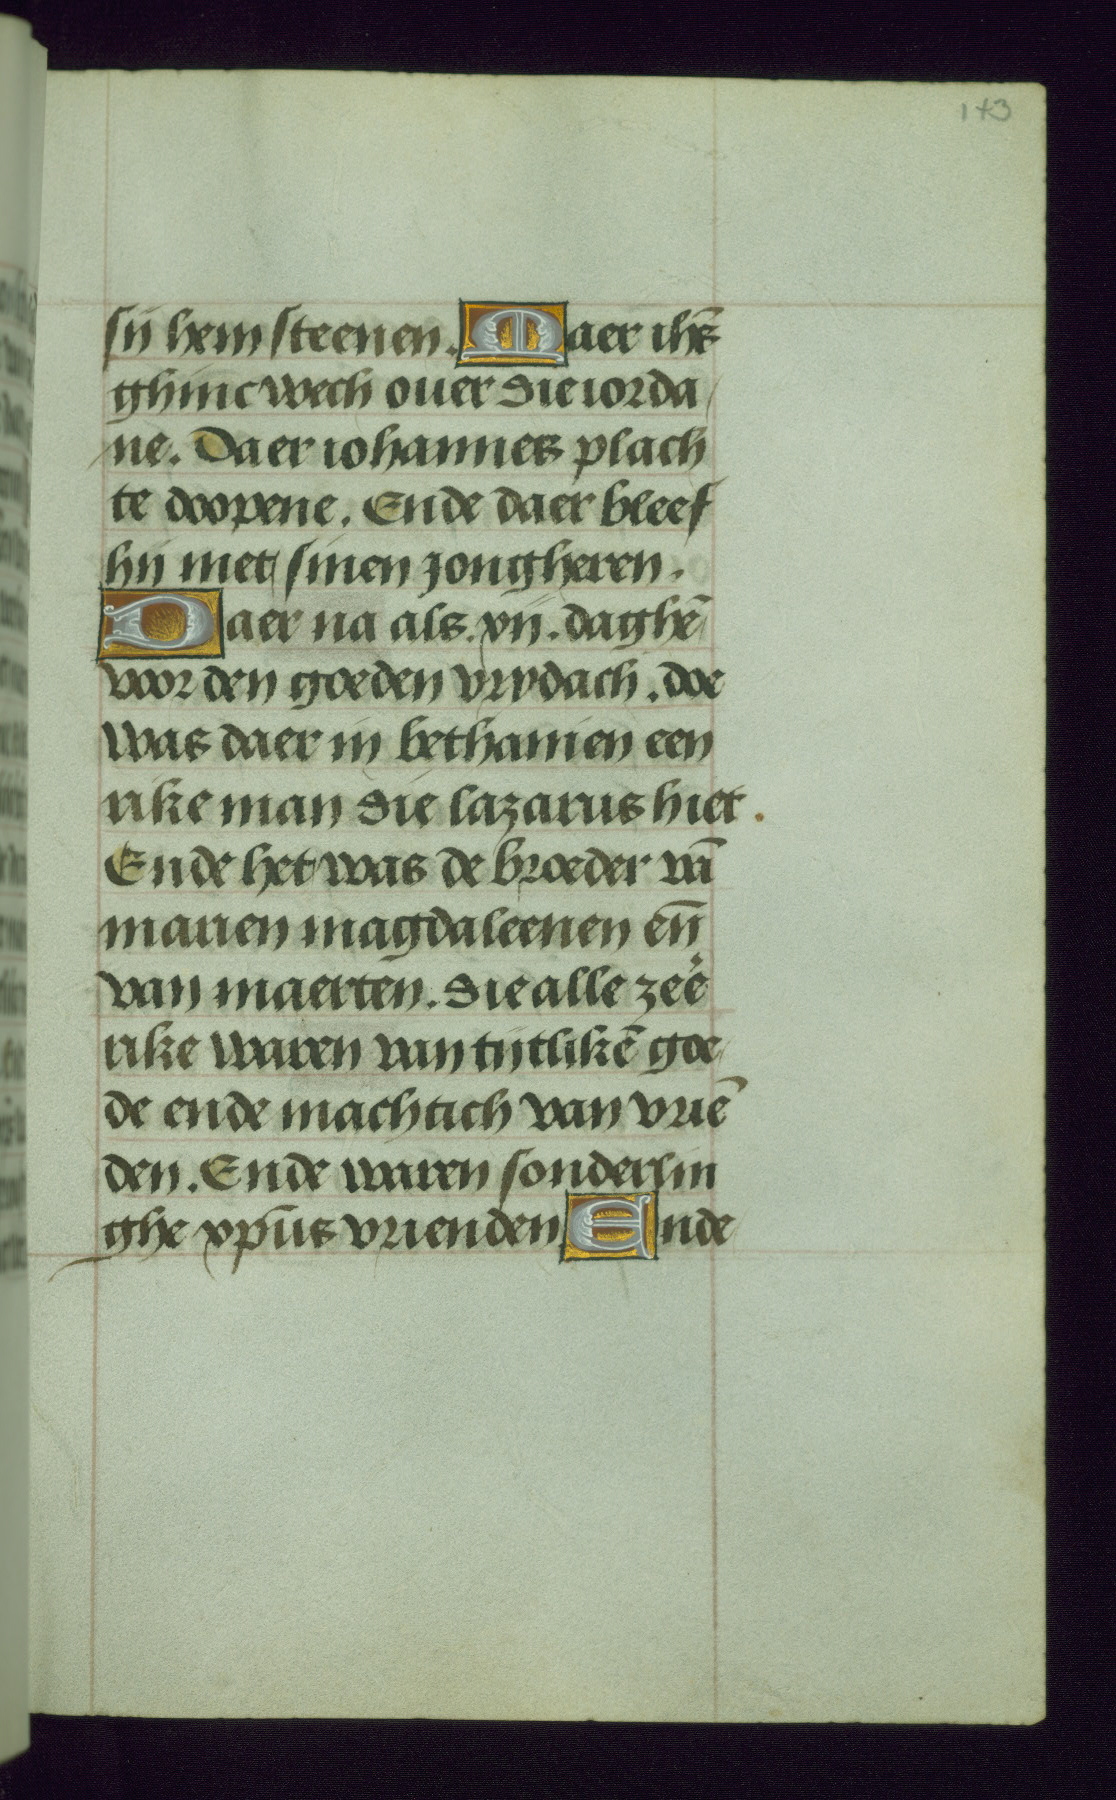 173
sij hem steenen. Maer ihs̄
ghinc wech ouer die iorda
ne. Daer iohannes plach
te doopene. Ende daer bleef
hij met sinen jongheren.
Daer na als .vij. daghē
voor den goeden vrydach. doe
was daer in bethanien een
rike man die lazarus hiet.
Ende het was de broeder vā
marien magdaleenen eñ
van maerten. die alle zeē
rike waren van tijtlikē goe
de ende machtich van vriē
den. Ende waren sonderlin
ghe xp̄us vrienden Ende